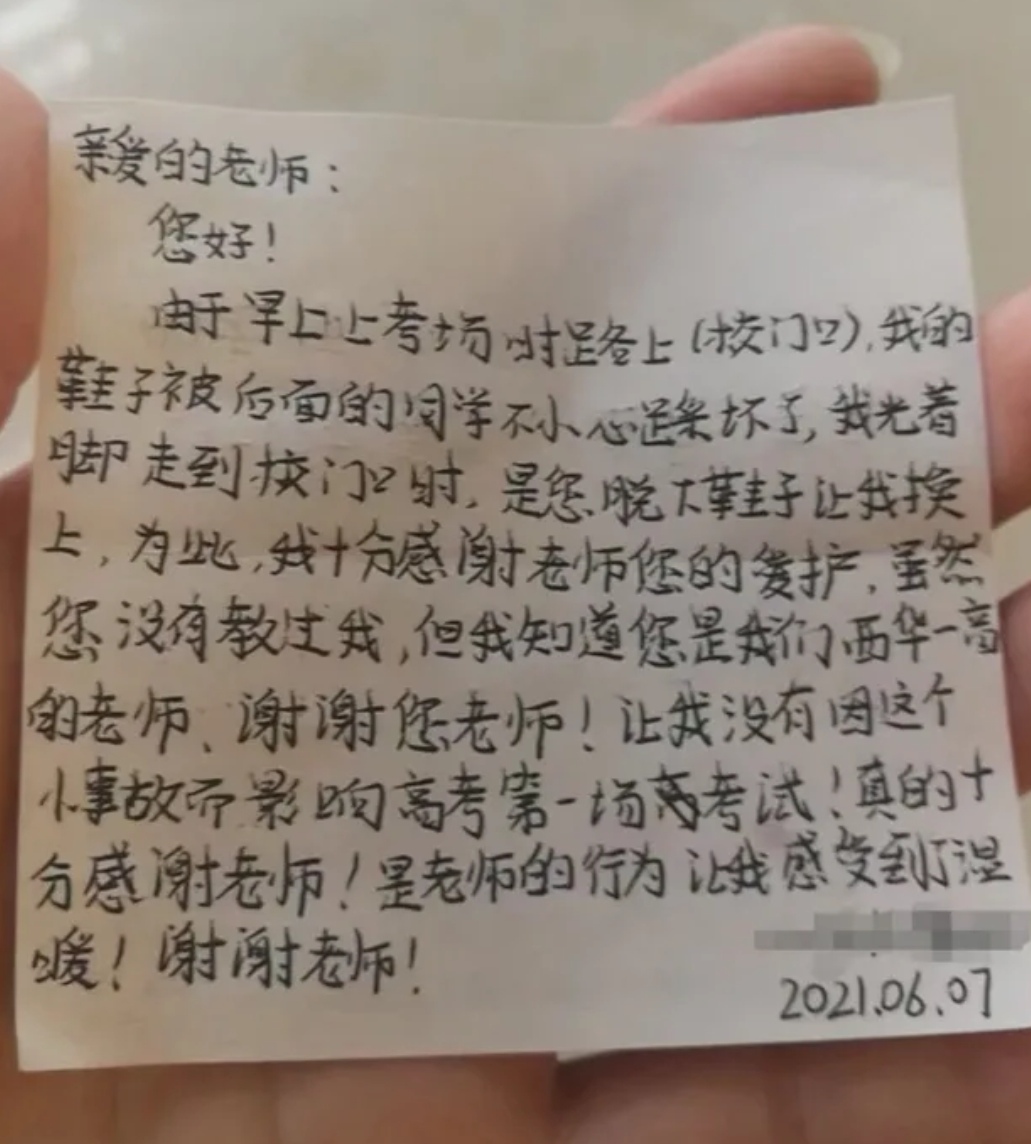 亲爱的老师：
您好！
由于早上上考场时路上(校门口)，我的
鞋子被后面的同学不小心踩坏了，我光着
脚走到校门口时，是您脱下鞋子让我换
上，为此，我十分感谢老师您的爱护，虽然
您没有教过我，但我知道您是我们西华一高
的老师、谢谢您老师！让我没有因这个
小事故而影响高考第一场考试！真的十
分感谢老师！是老师的行为让我感受到了温
暖！谢谢老师！
2021.06.07